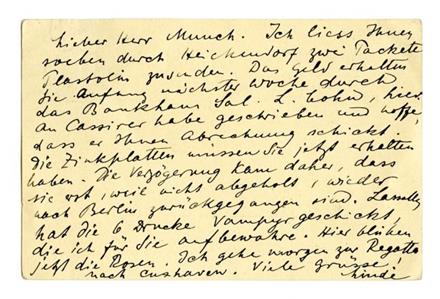 Lieber Herr Munch. Ich liess Ihnen
soeben durch Heichendorf zwei Packete
Plastolin zusenden. Das Geld erhalten
Sie Anfang nächster Woche durch
das Bankhaus Sal. L. Cohn, hier.
an Cassirer habe geschrieben und hoffe,
dass er Ihnen Abrechnung schickt.
Die Zinkplatten müssen Sie jetzt erhalten
haben. Die Verzögerung kam daher, dass
sie erst, weil nicht abgeholt, wieder
nach Berlin zurückgegangen sind. Lassally
hat die 6 Drucke Vampyr geschickt,
die ich für Sie aufbewahre. Hier blühen
jetzt die Rosen. Ich gehe morgen zur Regatta
nach Cuxhaven. Viele Grüsse!
Linde